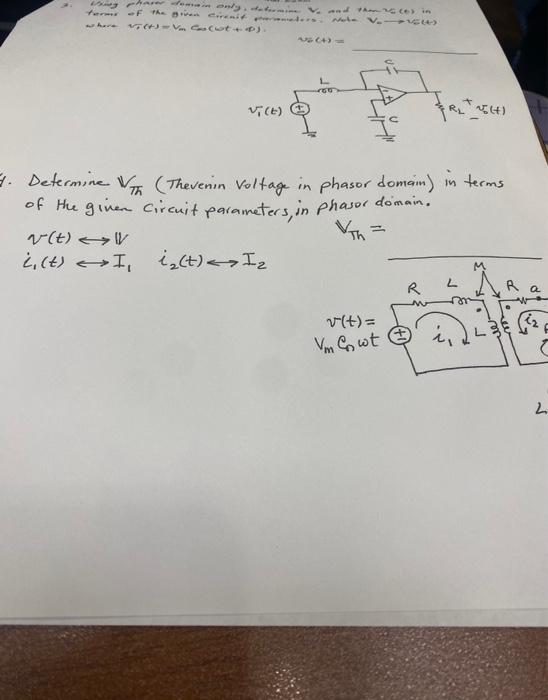 3. Using phasor domain only, determine V₀ and then v₀(t) in
terms of the given circuit parameters. Note V₀ → v₀(t)
where vᵢ(t) = Vm Cos(ωt + Φ).
v₀(t) =
L
C
vᵢ(t)
C
RL
v₀(t)
4. Determine VTh (Thevenin Voltage in phasor domain) in terms
of the given circuit parameters, in phasor domain.
VTh =
v(t) ↔ V
i₁(t) ↔ I₁ i₂(t) ↔ I₂
M
R L R a
v(t) =
Vm Cos ωt
i₁
L
i₂
L